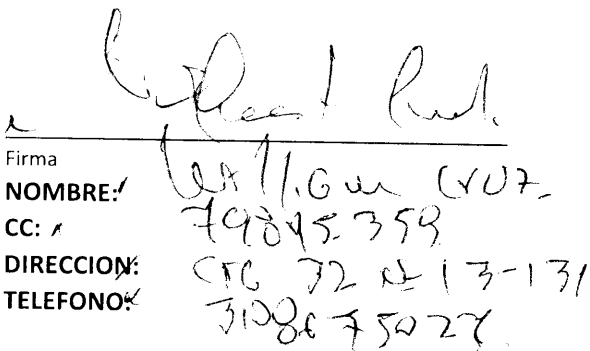 Firma
NOMBRE: William Cruz
CC: 79845.359
DIRECCION: 32 # 13-131
TELEFONO: 3108675027